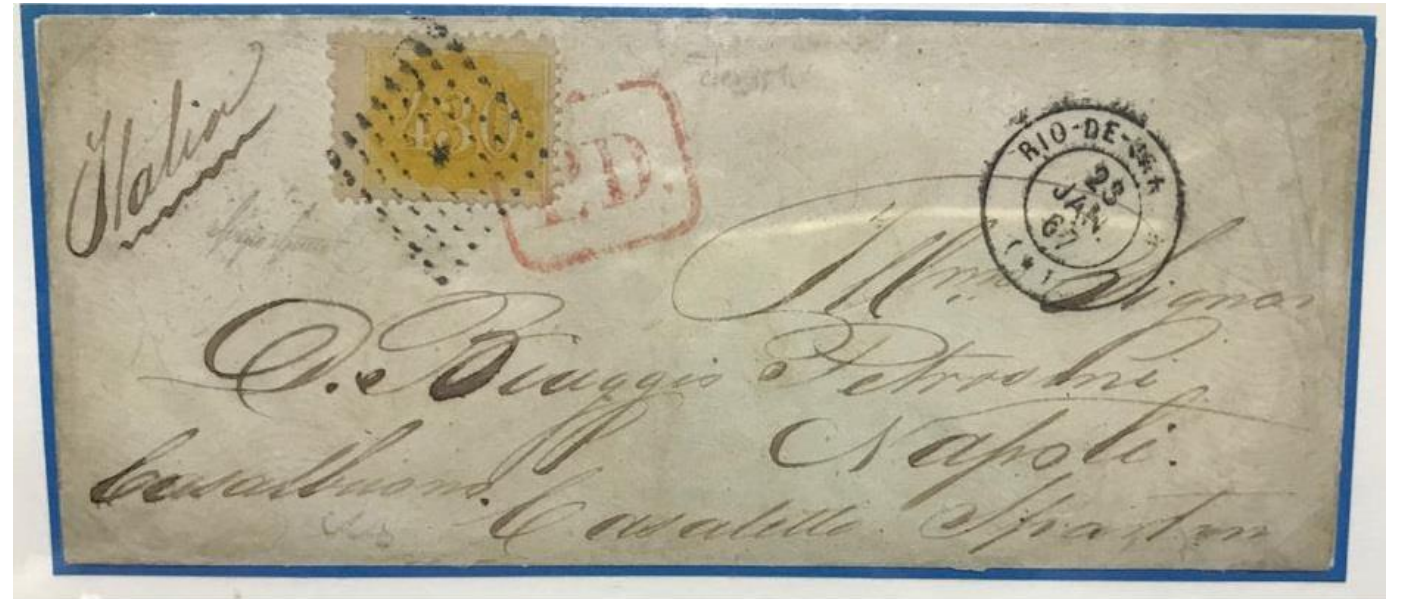 Italia
430
P.D.
RIO-DE-
23
JAN.
67
Illmo Signor
D. Biaggio Petrosini
Napoli.
Casalbuono. Casaletto Spartan